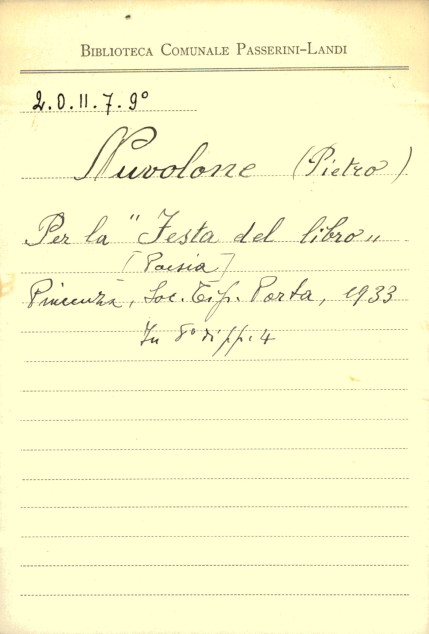 BIBLIOTECA COMUNALE PASSERINI-LANDI
2.0.11.7.9°
Nuvolone (Pietro)
Per la "Festa del libro„
[Poesia]
Piacenza, Soc. Tip. Porta, 1933
In 8° di pp. 4